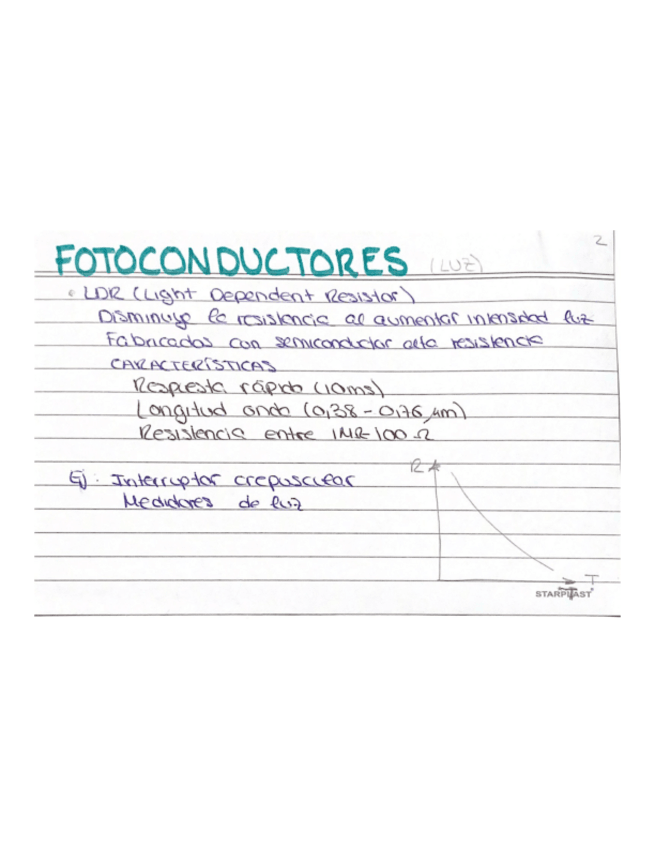 2
FOTOCONDUCTORES (LUZ)
• LDR (Light Dependent Resistor)
Disminuye la resistencia al aumentar intensidad luz
Fabricados con semiconductor alta resistencia
CARACTERÍSTICAS
Respuesta rápida (10ms)
Longitud onda (0,38 - 0,76 μm)
Resistencia entre 1MΩ-100 Ω
Ej: Interruptor crepuscular
Medidores de luz
R
T
STARPLAST